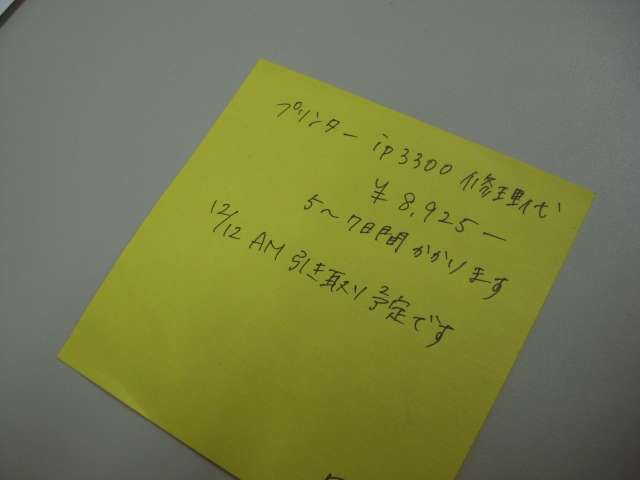 プリンター ip3300 修理代
¥ 8,925―
5～7日間かかります
12/12 AM 引き取り予定です